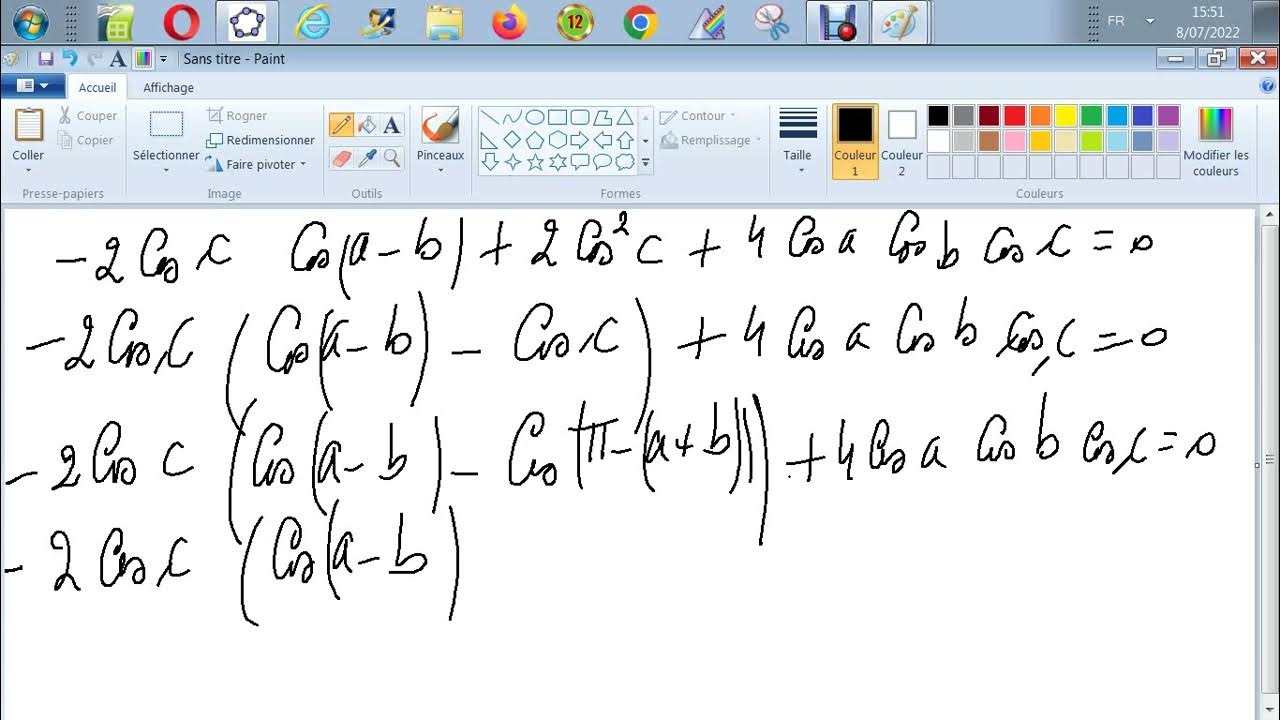 12
FR
15:51
8/07/2022
Sans titre - Paint
Accueil
Affichage
Coller
Couper
Copier
Presse-papiers
Sélectionner
Rogner
Redimensionner
Faire pivoter
Image
A
Outils
Pinceaux
Contour
Remplissage
Formes
Taille
Couleur 1
Couleur 2
Modifier les couleurs
Couleurs
-2 Cos c Cos(a-b) + 2 Cos² c + 4 Cos a Cos b Cos c = 0
-2 Cos c (Cos(a-b) - Cos c) + 4 Cos a Cos b Cos c = 0
-2 Cos c (Cos(a-b) - Cos(π-(a+b))) + 4 Cos a Cos b Cos c = 0
-2 Cos c (Cos(a-b)